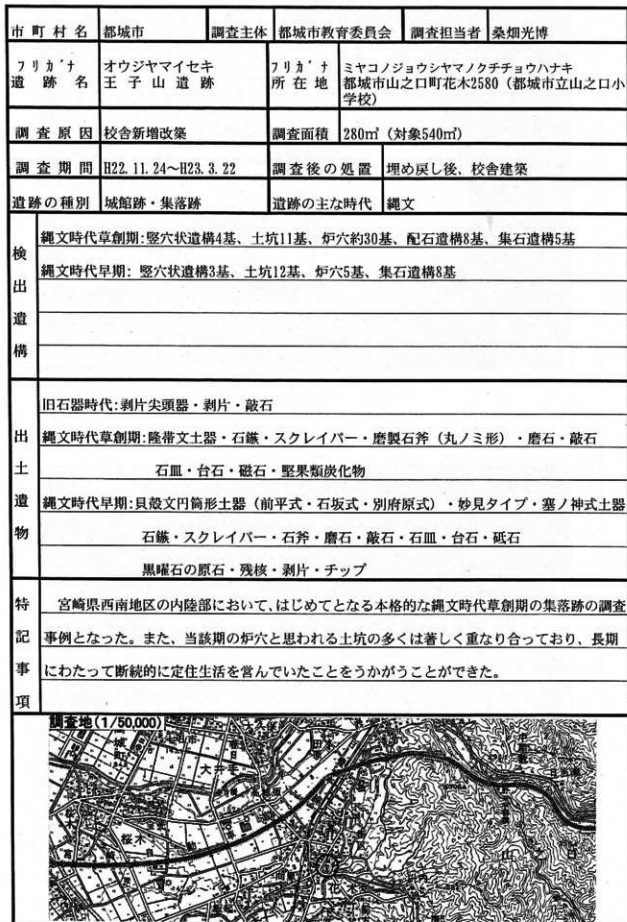 市町村名 都城市 調査主体 都城市教育委員会 調査担当者 桑畑光博
フリガナ オウジヤマイセキ フリガナ ミヤコノジョウシヤマノクチチョウハナキ
遺跡名 王子山遺跡 所在地 都城市山之口町花木2580(都城市立山之口小学校)
調査原因 校舎新増改築 調査面積 280㎡(対象540㎡)
調査期間 H22.11.24~H23.3.22 調査後の処置 埋め戻し後、校舎建築
遺跡の種別 城館跡・集落跡 遺跡の主な時代 縄文
検出遺構
縄文時代草創期:竪穴状遺構4基、土坑11基、炉穴約30基、配石遺構8基、集石遺構5基
縄文時代早期:竪穴状遺構3基、土坑12基、炉穴5基、集石遺構8基
出土遺物
旧石器時代:剥片尖頭器・剥片・敲石
縄文時代草創期:隆帯文土器・石鏃・スクレイパー・磨製石斧(丸ノミ形)・磨石・敲石
石皿・台石・磁石・堅果類炭化物
縄文時代早期:貝殻文円筒形土器(前平式・石坂式・別府原式)・妙見タイプ・塞ノ神式土器
石鏃・スクレイパー・石斧・磨石・敲石・石皿・台石・砥石
黒曜石の原石・残核・剥片・チップ
特記事項
宮崎県西南地区の内陸部において、はじめてとなる本格的な縄文時代草創期の集落跡の調査
事例となった。また、当該期の炉穴と思われる土坑の多くは著しく重なり合っており、長期
にわたって断続的に定住生活を営んでいたことをうかがうことができた。
調査地(1/50,000)
桜木
花木